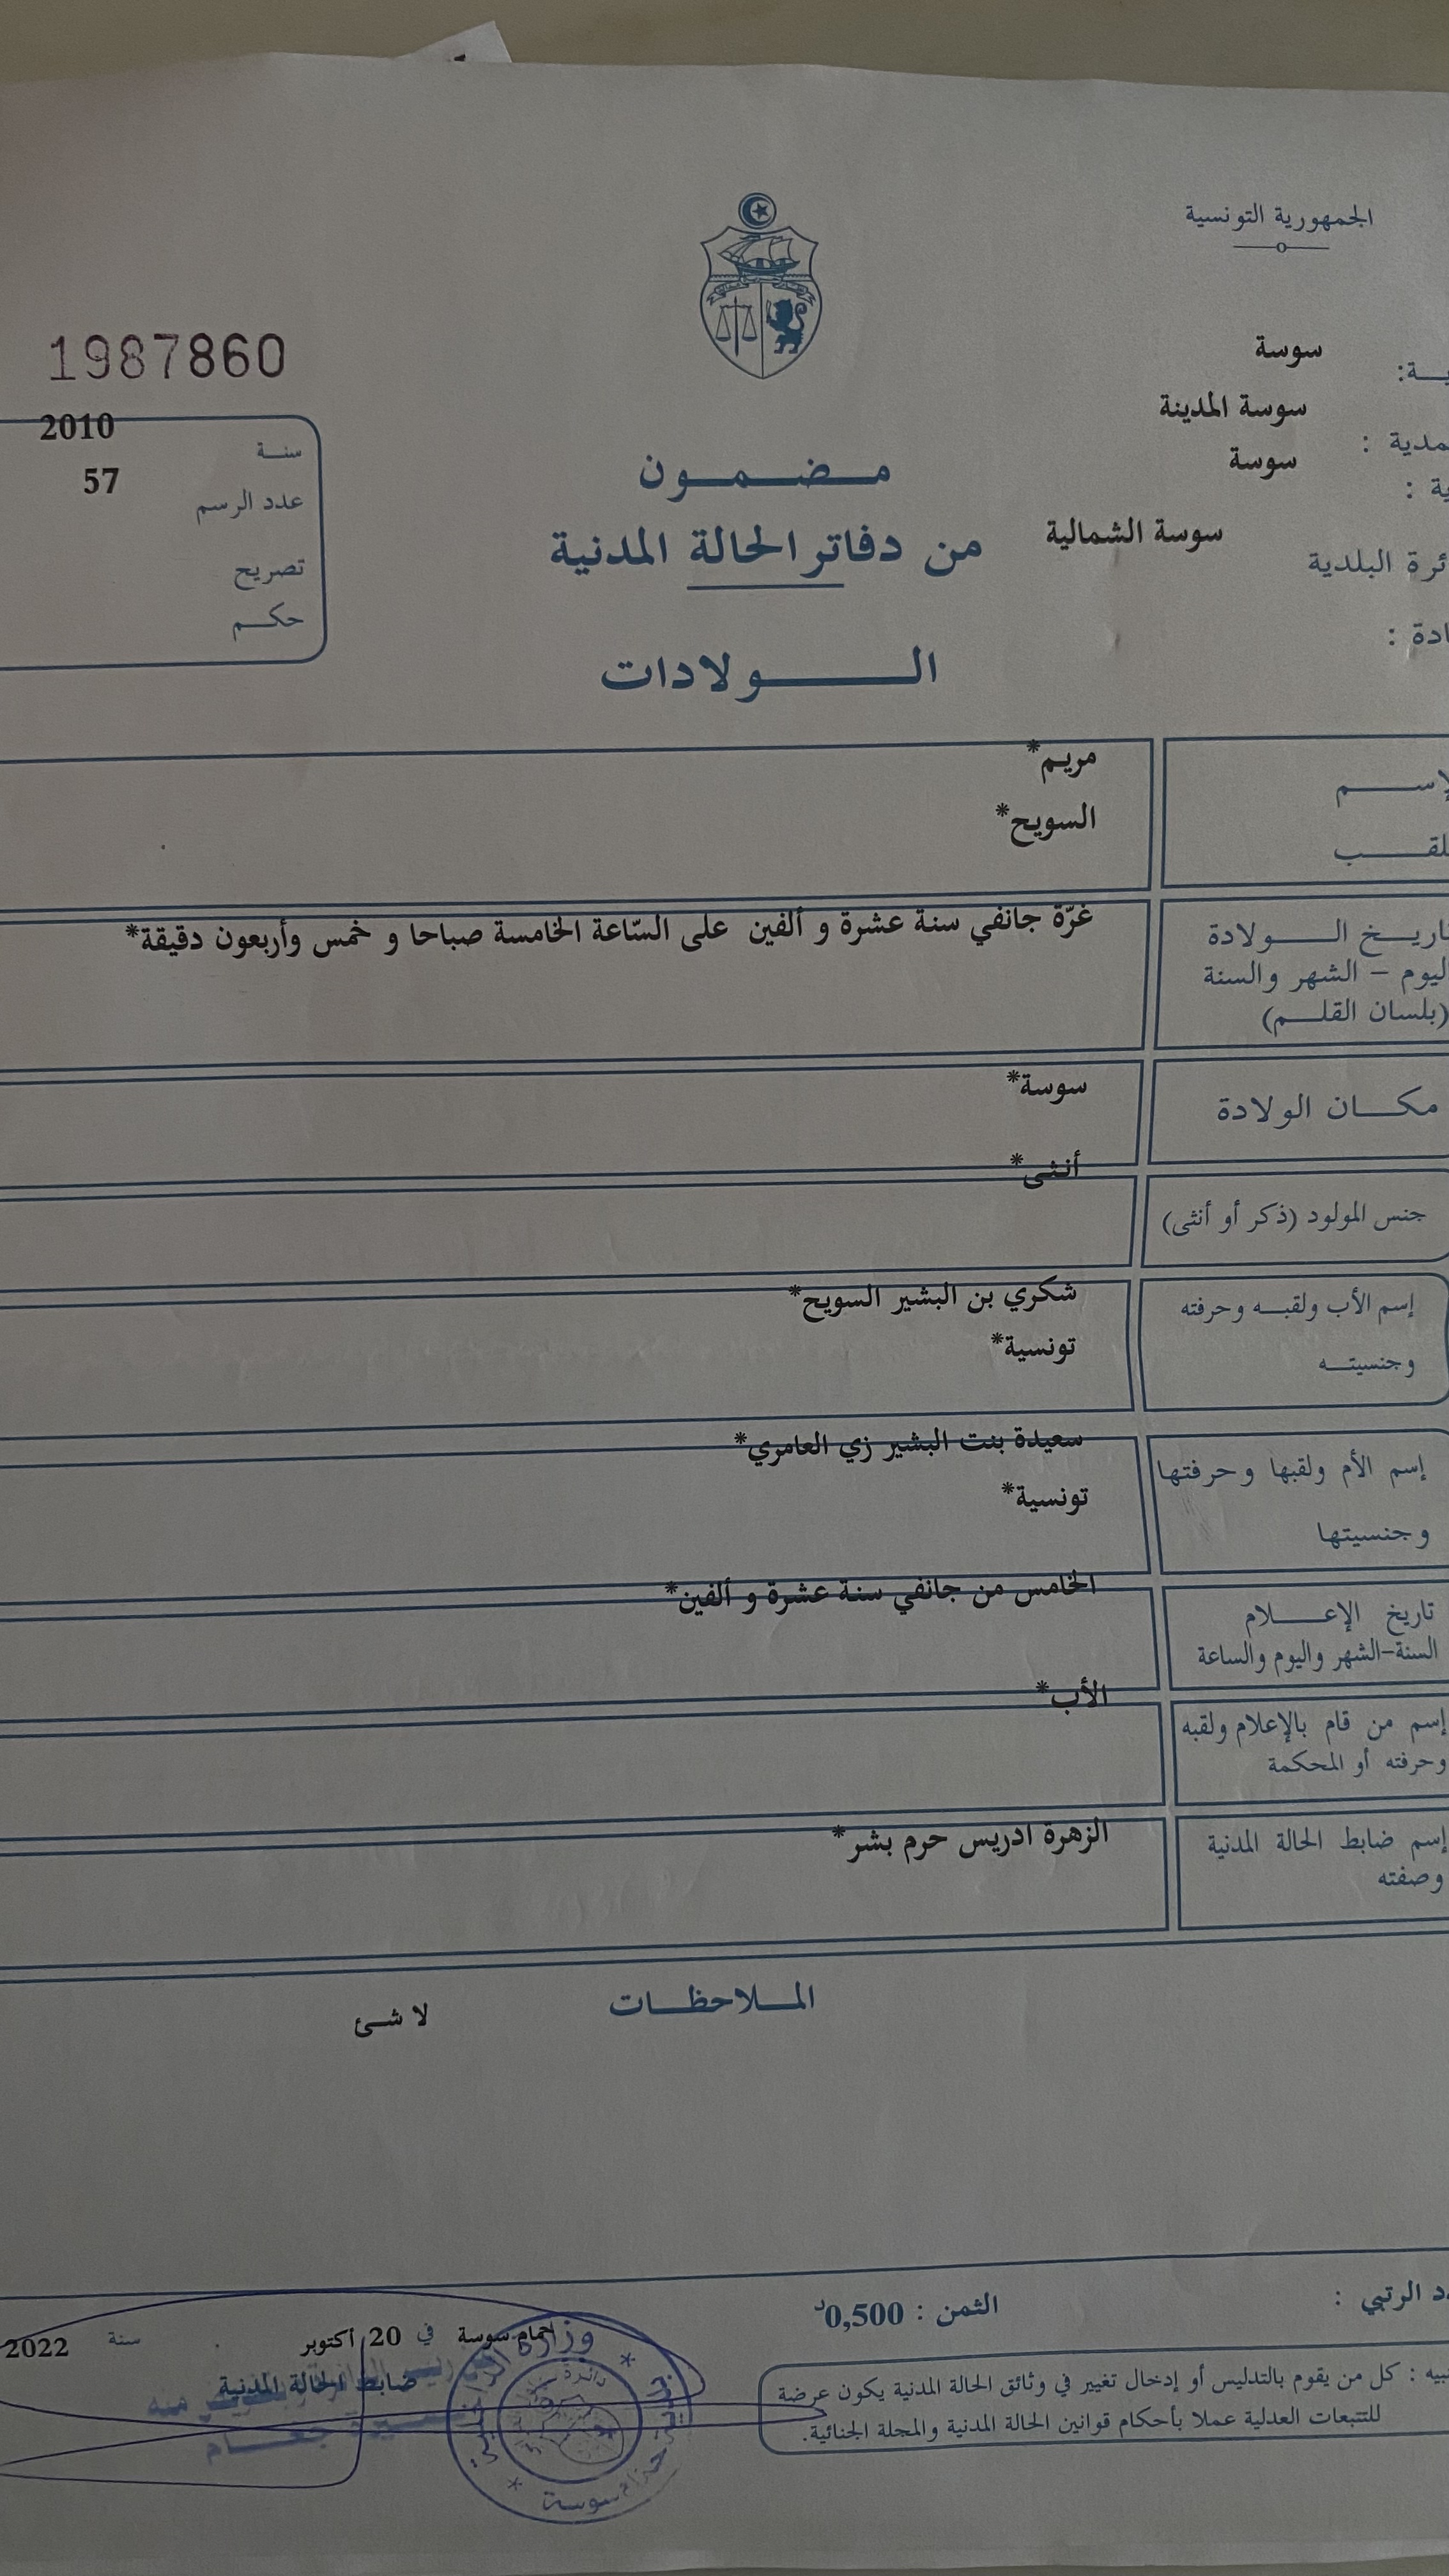 الجمهورية التونسية
سوسة
سوسة المدينة
سوسة
سوسة الشمالية
البلدية
1987860
سنة 2010
عدد الرسم 57
تصريح
حكم
مضمون
من دفاتر الحالة المدنية
الولادات
مريم*
السويح*
الولادة غرّة جانفي سنة عشرة و ألفين على السّاعة الخامسة صباحا و خمس وأربعون دقيقة*
– الشهر والسنة
(بلسان القلم)
مكان الولادة سوسة*
جنس المولود (ذكر أو أنثى) أنثى*
إسم الأب ولقبه وحرفته شكري بن البشير السويح*
وجنسيته تونسية*
إسم الأم ولقبها وحرفتها سعيدة بنت البشير زي العامري*
وجنسيتها تونسية*
تاريخ الإعلام الخامس من جانفي سنة عشرة و ألفين*
السنة-الشهر واليوم والساعة
إسم من قام بالإعلام ولقبه الأب*
وحرفته أو المحكمة
إسم ضابط الحالة المدنية الزهرة ادريس حرم بشر*
وصفته
الملاحظات
لا شئ
الرتبي :
الثمن : 0,500د
حمام سوسة في 20 أكتوبر سنة 2022
ضابط الحالة المدنية
كل من يقوم بالتدليس أو إدخال تغيير في وثائق الحالة المدنية يكون عرضة
للتتبعات العدلية عملا بأحكام قوانين الحالة المدنية والمجلة الجنائية.
وزارة
سوسة